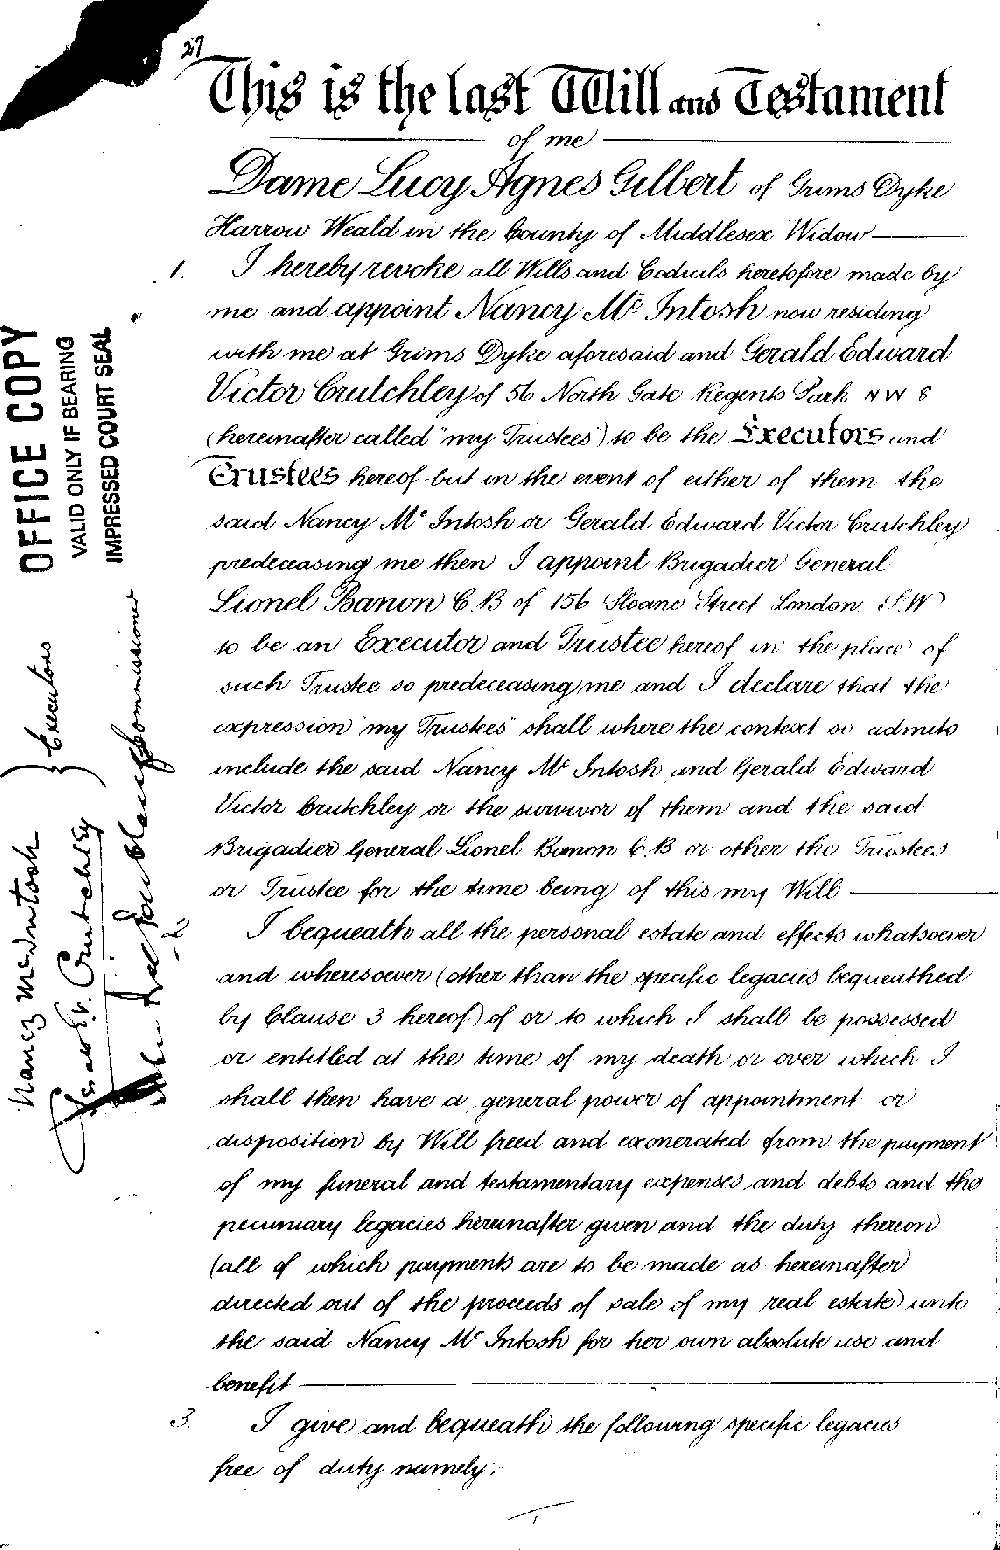 27
This is the last Will and Testament
of me
Dame Lucy Agnes Gilbert of Grims Dyke
Harrow Weald in the County of Middlesex Widow
1. I hereby revoke all Wills and Codicils heretofore made by
me and appoint Nancy Mc Intosh now residing
with me at Grims Dyke aforesaid and Gerald Edward
Victor Crutchley of 56 North Gate Regents Park N W 8
(hereinafter called "my Trustees") to be the Executors and
Trustees hereof but in the event of either of them the
said Nancy Mc Intosh or Gerald Edward Victor Crutchley
predeceasing me then I appoint Brigadier General
Lionel Banon C.B of 156 Sloane Street London S.W
to be an Executor and Trustee hereof in the place of
such Trustee so predeceasing me and I declare that the
expression "my Trustees" shall where the context so admits
include the said Nancy Mc Intosh and Gerald Edward
Victor Crutchley or the survivor of them and the said
Brigadier General Lionel Banon C.B or other the Trustees
or Trustee for the time being of this my Will
2. I bequeath all the personal estate and effects whatsoever
and wheresoever (other than the specific legacies bequeathed
by Clause 3 hereof) of or to which I shall be possessed
or entitled at the time of my death or over which I
shall then have a general power of appointment or
disposition by Will freed and exonerated from the payment
of my funeral and testamentary expenses and debts and the
pecuniary legacies hereinafter given and the duty thereon
(all of which payments are to be made as hereinafter
directed out of the proceeds of sale of my real estate) unto
the said Nancy Mc Intosh for her own absolute use and
benefit
3. I give and bequeath the following specific legacies
free of duty namely:
OFFICE COPY
VALID ONLY IF BEARING
IMPRESSED COURT SEAL
Nancy McIntosh
Gerald E.V. Crutchley
} Executors
Commissioner